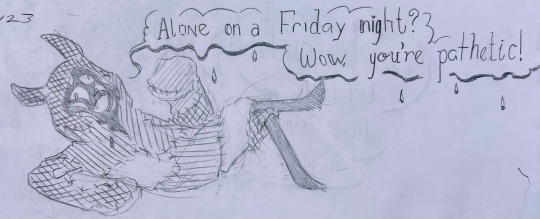 123
Alone on a Friday night?
Wow, you're pathetic!